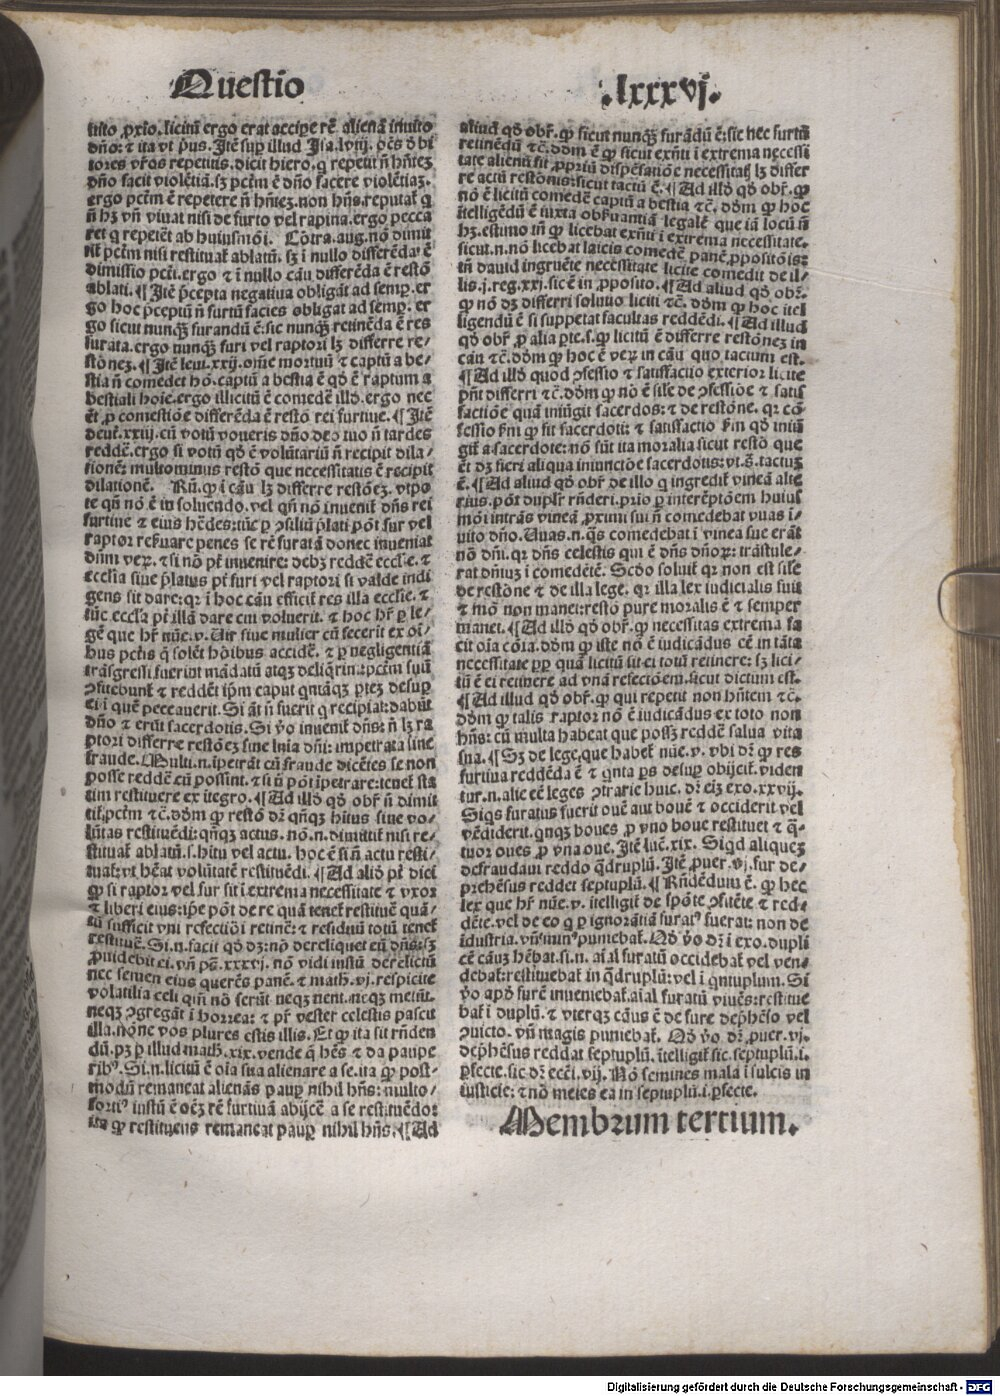 Questio
.lxxxvj.
uito ꝓxío. licitū ergo erat accipe rē alienā inuito
dn̄o: ⁊ ita vt pͥus. Itē suꝑ illud Isa. lviij. oēs debi
tores vr̄os repetitis. dicit hiero. qͥ repetit ñ hn̄teʒ
dn̄o facit violētiā. sʒ pctm̄ ē dn̄o facere violētiaʒ.
ergo pctm̄ ē repetere ñ hn̄teʒ. non hn̄s. reputat qͥ
ñ hʒ vn̄ viuat nisi de furto vel rapina. ergo pecca
ret qͥ repetēt ab huiusmōi. Cōtra. aug. nō dimit
tit̄ pctm̄ nisi restituat̄ ablatū. sʒ ī nullo differēda ē
dimissio pcti. ergo ⁊ ī nullo cāu differēda ē restō
ablati. ¶ Itē p̄cepta negatiua obligāt ad semꝑ. er
go hoc p̄ceptū ñ furtū facies obligat ad semꝑ. er
go sicut nunqͣʒ furandū ē: sic nunqͣʒ retinēda ē res
furata. ergo nunqͣʒ furi vel raptori lʒ differre re/
stōneʒ. ¶ Itē leui. xxij. om̄e mortuū ⁊ captū a be/
stia ñ comedet hō. captū a bestia ē qd̄ ē raptum a
bestiali hoīe. ergo illicitū ē comedē illd̄. ergo nec
ēt ꝓ comestiōe differēda ē restō rei furtiue. ¶ Itē
deut̄. xxiij. cū votū voueris dn̄o deo tuo ñ tardes
reddē. ergo si votū qd̄ ē volūtariū ñ recipit dila/
tionē: multominus restō que necessitatis ē recipit
dilationē. Rñ. ꝙ ī cāu lʒ differre restōeʒ. vtpo
te qn̄ nō ē in soluendo. vel qn̄ nō inuenit̄ dn̄s rei
furtiue ⁊ eius hēdes: tūc ꝑ ꝯsiliū p̄lati pōt fur vel
raptor reẜuare penes se rē furatā donec inueniat
dn̄m veꝝ. ⁊ si nō pōt inuenire: debʒ reddē ecclīe. ⁊
ecclīa siue p̄latus pt̄ furi vel raptori si valde indi
gens sit dare: qr ī hoc cāu efficit̄ res illa ecclīe. ⁊
tūc ecclīa pt̄ illā dare cui voluerit. ⁊ hoc hr̄ ꝑ le/
gē que hr̄ nūe. v. Uir siue mulier cū fecerit ex oī/
bus pctis q̄ solēt hoībus accidē. ⁊ ꝑ negligentiā
trāsgressi fuerint mādatū atqʒ deliqͥrint: pctm̄ suū
ꝯfitebunt̄ ⁊ reddēt ip̄m caput qͥntāqʒ ꝑteʒ desuꝑ
ei ī quē peccauerit. Si āt ñ fuerit qͥ recipiat: dabūt
dn̄o ⁊ erūt sacerdotis. Si v̄o inuenit̄ dn̄s: ñ lʒ ra
ptori differre restōeʒ sine lnīa dn̄i: impetrata sine
fraude. Multi. n. īpetrāt cū fraude dicētes se non
posse reddē cū possint. ⁊ si ñ pōt īpetrare: tenet̄ sta
tim restituere ex ītegro. ¶ Ad illd̄ qd̄ obr̄ ñ dimit
tit̄ pctm̄ ⁊c̄. dōm ꝙ restō dr̄ qn̄qʒ hītus siue vo/
lūtas restituēdi: qn̄qʒ actus. nō. n. dimittit̄ nisi re/
stituat̄ ablatū. s. hītu vel actu. hoc ē si ñ actu resti/
tuat̄: vt hēat volūtatē restituēdi. ¶ Ad aliō pt̄ dici
ꝙ si raptor vel fur sit ī extrema necessitate ⁊ vxor
⁊ liberi eius: ip̄e pōt de re quā tenet̄ restituē quā/
tū sufficit vni refectiōi retinē: ⁊ residuū totū tenet̄
restituē. Si. n. facit qd̄ dʒ: nō derelinquet eū dn̄s: sʒ
ꝓuidebit ei. vn̄ pͣ. xxxvj. nō vidi iustū derelictū
nec semen eius querēs panē. ⁊ math̄. vj. respicite
volatilia celi qm̄ nō serūt neqʒ nent. neqʒ metūt.
neqʒ ꝯgregāt ī horrea: ⁊ pr̄ vester celestis pascit
illa. nōne vos plures estis illis. Et ꝙ ita sit rn̄den
dū. pʒ ꝑ illud math̄. xix. vende qͥ hēs ⁊ da paupe
ribꝰ. Si. n. licitū ē oīa sua alienare a se. ita ꝙ post/
modū remaneat alienās paup̱ nihil hn̄s: multo/
fortiꝰ iustū ē oēʒ rē furtiuā abijcē a se restituēdo:
ita ꝙ restituens remaneat paup̱ nihil hn̄s. ¶ Ad
aliud qd̄ obr̄. ꝙ sicut nunqͣʒ furādū ē: sic nec furtū
retinēdū ⁊c̄. dōm ē ꝙ sicut exn̄ti ī extrema necessi
tate alienū fit ꝓpriū dispēsatiōe necessitatʒ lʒ differ
re actū restōnis: sicut tactū ē. ¶ Ad illd̄ qd̄ obr̄. ꝙ
nō ē licitū comedē captū a bestia ⁊c̄. dōm ꝙ hoc
ītelligēdū ē iuxta obẜuantiā legalē que iā locū ñ
hʒ. estimo tn̄ ꝙ licebat exn̄ti ī extrema necessitate.
sicut. n. nō licebat laicis comedē panē ꝓpositōis:
tn̄ dauid ingruēte necessitate licite comedit de il/
lis. j. reg. xxj. sic ē in ꝓposito. ¶ Ad aliud qd̄ obr̄.
ꝙ nō dʒ differri solutio liciti ⁊c̄. dōm ꝙ hoc ītel
ligendū ē si suppetat facultas reddēdi. ¶ Ad illud
qd̄ obr̄ ꝓ alia ꝑte. s. ꝙ licitū ē differre restōneʒ in
cāu ⁊c̄. dōm ꝙ hoc ē veꝝ in cāu quo tactum est.
¶ Ad illd̄ quod ꝯfessio ⁊ satisfactio exterior licite
pn̄t differri ⁊c̄. dōm ꝙ nō ē sile de ꝯfessiōe ⁊ satis
factiōe quā iniūgit sacerdos: ⁊ de restōne. qr cō
fessio ẜm ꝙ fit sacerdoti: ⁊ satisfactio ẜm qd̄ iniū
git̄ a sacerdote: nō sūt ita moralia sicut restō que
ēt dʒ fieri aliqua iniunctiōe sacerdotis: vt. s̄. tactuʒ
ē. ¶ Ad aliud qd̄ obr̄ de illo qͥ ingredit̄ vineā alte
rius. pōt duplr̄ rn̄deri. pͥo ꝑ interēptōem huius
mōi intrās vineā ꝓximi sui ñ comedebat vuas ī/
uito dn̄o. Uuas. n. qͣs comedebat ī vinea sue erāt
nō dn̄i. qr dn̄s celestis qui ē dn̄s dn̄oꝝ: trāstule/
rat dn̄iuʒ ī comedētē. Scd̄o soluit̄ qr non est sile
de restōne ⁊ de illa lege. qr illa lex iudicialis fuit
⁊ mō non manet: restō pure moralis ē ⁊ semper
manet. ¶ Ad illd̄ qd̄ obr̄. ꝙ necessitas extrema fa
cit oīa cōīa. dōm ꝙ iste nō ē iudicādus eē in tāta
necessitate ꝓp̱ quā licitū sit ei totū retinere: sʒ lici/
tū ē ei retinere ad vnā refectiōem. sicut dictum est.
¶ Ad illud qd̄ obr̄. ꝙ qui repetit non hn̄tem ⁊c̄.
dōm ꝙ talis raptor nō ē iudicādus ex toto non
hn̄s: cū multa habeat que possʒ reddē salua vita
sua. ¶ Sʒ de lege, que habet̄ nūe. v. vbi dr̄ ꝙ res
furtiua reddēda ē ⁊ qͥnta ps̄ desuꝑ obijcit̄. viden
tur. n. alie eē leges ꝯtrarie huic. dr̄ eīʒ exo. xxvij.
Siqs furatus fuerit ouē aut bouē ⁊ occiderit vel
vēdiderit. qͥnqʒ boues ꝓ vno boue restituet ⁊ q̄/
tuor oues ꝓ vna oue. Itē luc̄. xix. Siqͥd aliqueʒ
defraudaui reddo qͣdruplū. Itē ꝓuer. vj. fur de/
prehēsus reddet septuplū. ¶ Rn̄dēdum ē. ꝙ hec
lex que hr̄ nūe. v. ītelligit̄ de spōte ꝯfitēte ⁊ red/
dēte. vel de eo qͥ ꝑ ignorātiā furatꝰ fuerat: non de
īdustria. vn̄ minꝰ puniebat̄. Qd̄ v̄o dr̄ ī exo. dupli
cē cāuʒ hēbat. si. n. aīal furatū occidebat vel ven/
debat: restituebat in qͣdruplū: vel ī qͥntuplum. Si
v̄o apd̄ furē inueniebat̄ aīal furatū viuēs: restitue
bat ī duplū. ⁊ vterqʒ cāus ē de fure dep̄hēso vel
ꝯuicto. vn̄ magis puniebat̄. Qd̄ v̄o dr̄. ꝓuer. vj.
dep̄hēsus reddat septuplū. ītelligit̄ sic. septuplū. i.
ꝑfecte. sic dr̄ ecc̄i. vij. Nō semines mala ī sulcis in
iusticie: ⁊ nō metes ea in septuplū. i. ꝑfecte.
Membrum tertium.
Digitalisierung gefördert durch die Deutsche Forschungsgemeinschaft - DFG